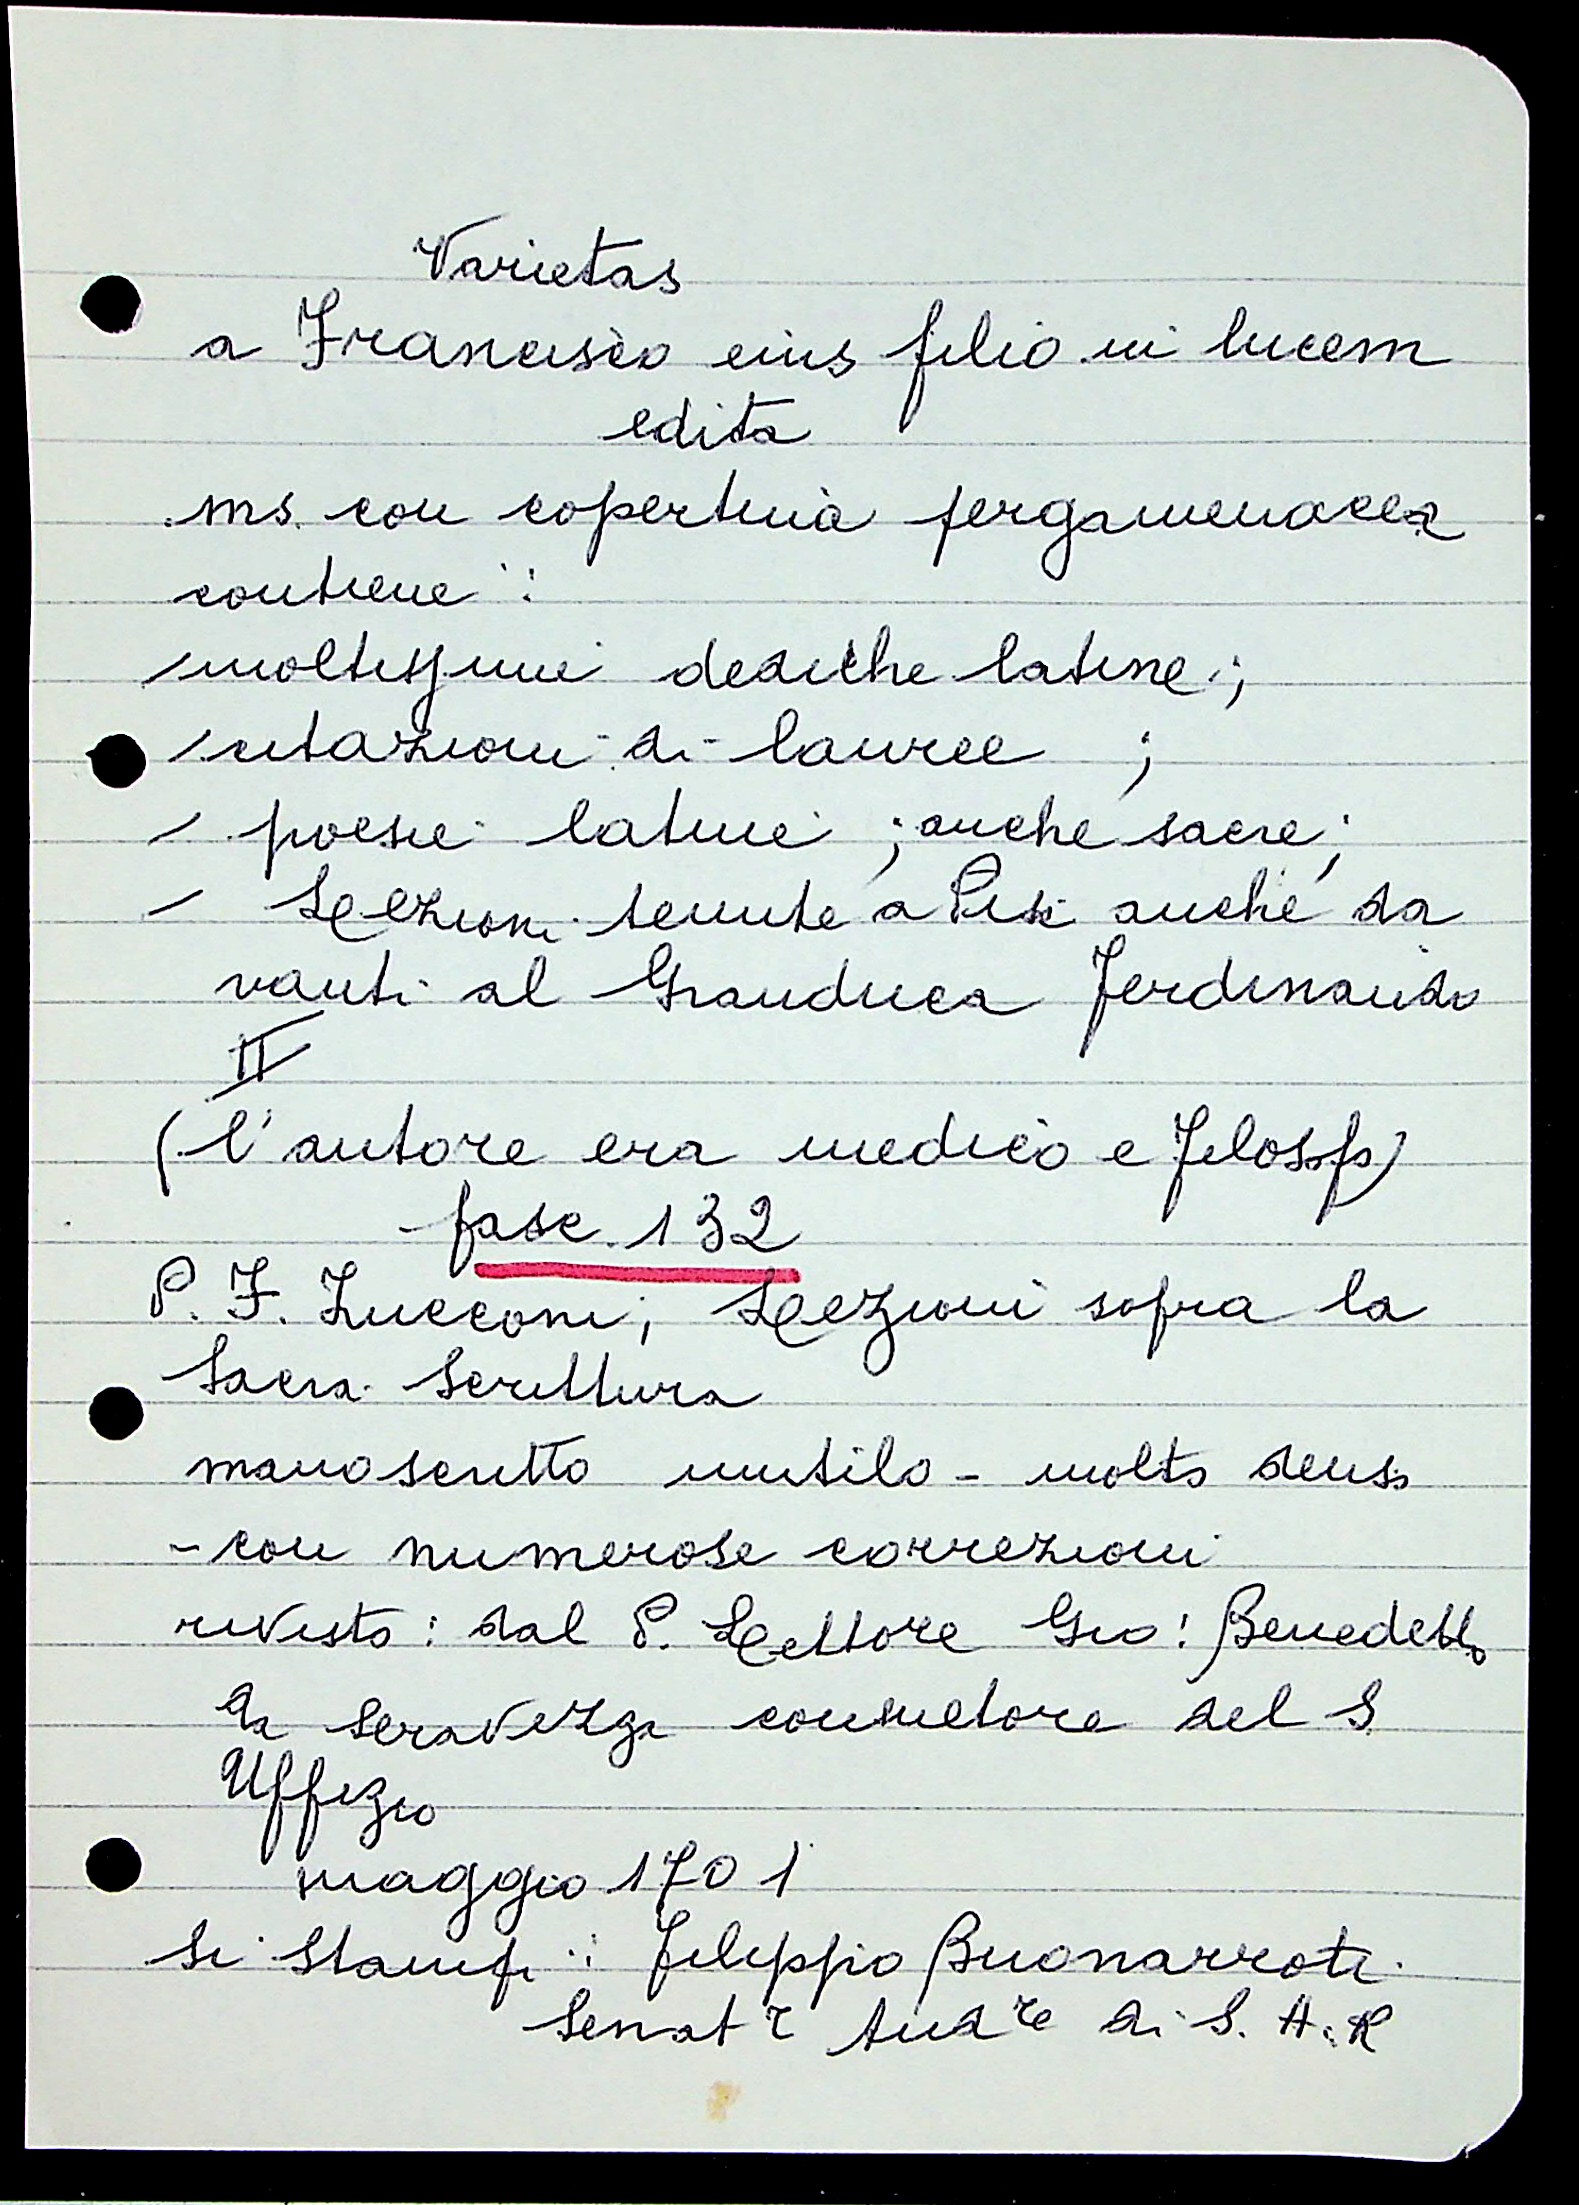 Varietas
a Francisco eius filio in lucem
edita
ms. con copertina pergamenacea
contiene:
/ moltissime dediche latine;
/ citazioni di lauree ;
/ poesie latine ; anche sacre;
/ Lezioni tenute a Pisa anche da
vanti al Granduca Ferdinando
II
(l'autore era medico e filosofo)
fasc. 132
P. F. Zucconi; Lezioni sopra la
Sacra Scrittura
manoscritto mutilo - molto denso
- con numerose correzioni
rivisto: dal P. Lettore Gio: Benedetto
da Seravezza consultore del S.
Uffizio
maggio 1701
Si Stampi: Filippo Buonarroti
Senat.r Aud.re di S. A. R